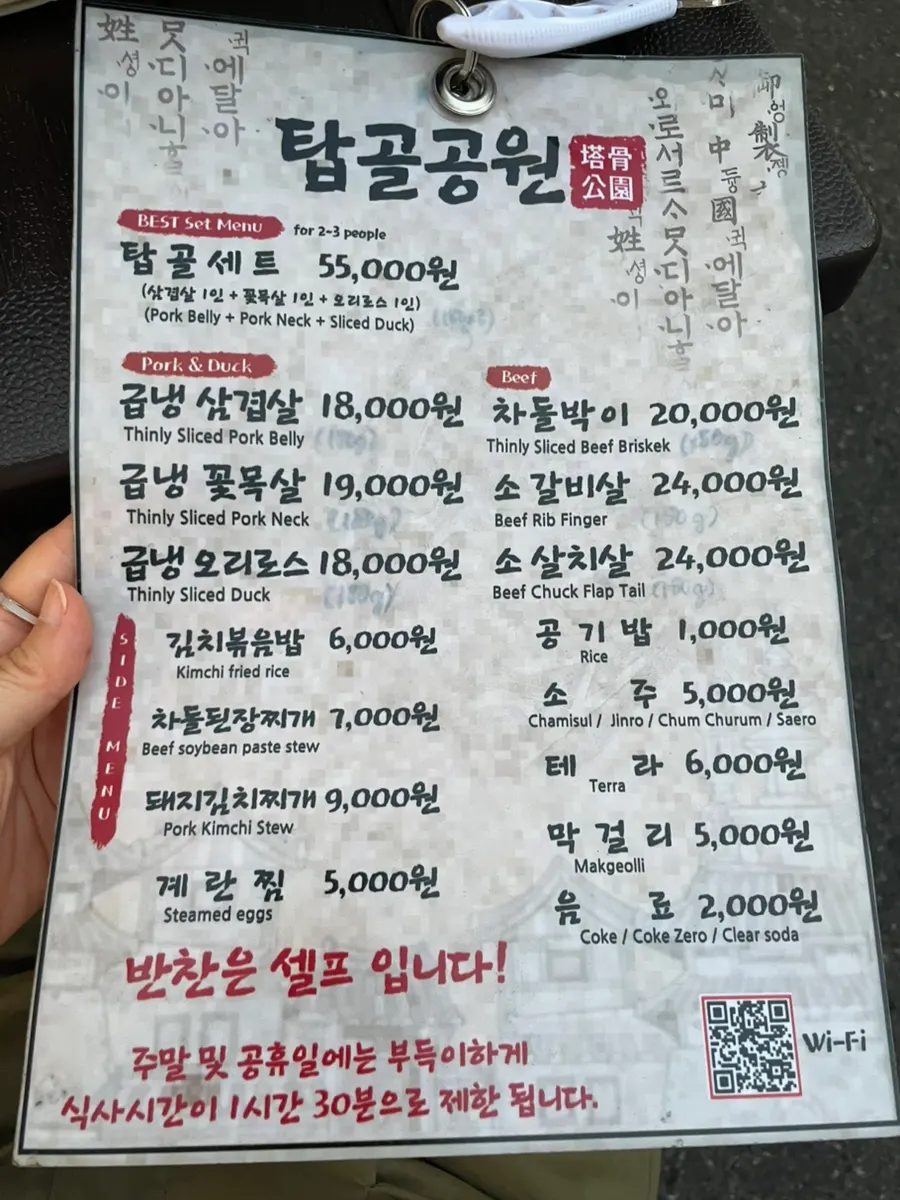 탑골공원
塔骨
公園
BEST Set Menu for 2~3 people
탑골세트 55,000원
(삼겹살 1인 + 꽃목살 1인 + 오리로스 1인)
(Pork Belly + Pork Neck + Sliced Duck)
Pork & Duck
급냉 삼겹살 18,000원
Thinly Sliced Pork Belly
급냉 꽃목살 19,000원
Thinly Sliced Pork Neck
급냉 오리로스 18,000원
Thinly Sliced Duck (150g)
Beef
차돌박이 20,000원
Thinly Sliced Beef Briskek (150g)
소 갈비살 24,000원
Beef Rib Finger (150g)
소 살치살 24,000원
Beef Chuck Flap Tail (150g)
SIDE MENU
김치볶음밥 6,000원
Kimchi fried rice
차돌된장찌개 7,000원
Beef soybean paste stew
돼지김치찌개 9,000원
Pork Kimchi Stew
계란찜 5,000원
Steamed eggs
공기밥 1,000원
Rice
소주 5,000원
Chamisul / Jinro / Chum Churum / Saero
테라 6,000원
Terra
막걸리 5,000원
Makgeolli
음료 2,000원
Coke / Coke Zero / Clear soda
반찬은 셀프 입니다!
주말 및 공휴일에는 부득이하게
식사시간이 1시간 30분으로 제한 됩니다.
Wi-Fi